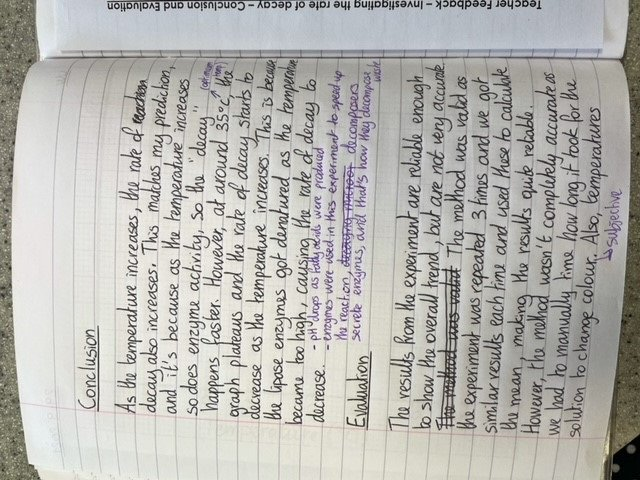 Teacher Feedback – Investigating the rate of decay – Conclusion and Evaluation
Conclusion
As the temperature increases, the rate of
decay also increases. This matches my prediction,
and it's because as the temperature increases
so does enzyme activity, so the "decay"
happens faster. However, at around 35°C the
graph plateaus and the rate of decay starts to
decrease as the temperature increases. This is because
the lipase enzymes got denatured as the temperature
became too high, causing the rate of decay to
decrease.
- pH drops as fatty acids were produced
- enzymes were used in this experiment to speed up
the reaction, decomposers
secrete enzymes, and that's how they decompose
Evaluation
The results from the experiment are reliable enough
to show the overall trend, but are not very accurate.
The method was valid The method was valid as
the experiment was repeated 3 times and we got
similar results each time and used these to calculate
the mean, making the results quite reliable.
However, the method wasn't completely accurate as
we had to manually time how long it took for the
solution to change colour. Also, temperatures
↳ subjective